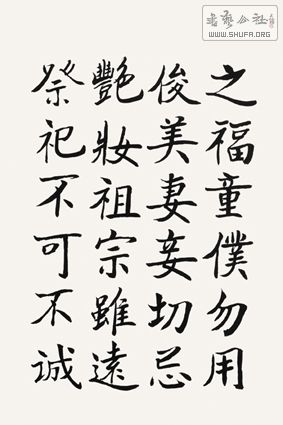 書藝公社
WWW.SHUFA.ORG
之福童僕勿用
俊美妻妾切忌
艷妝祖宗雖遠
祭祀不可不誠